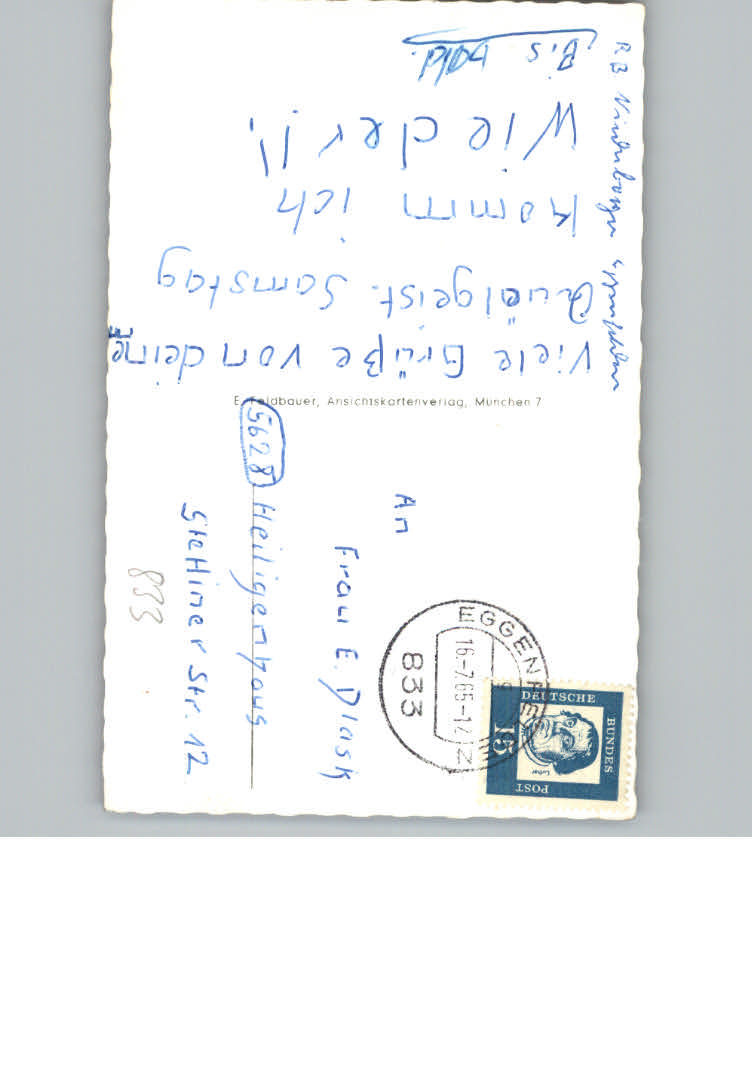 Viele Grüße von deinem
Quälgeist. Samstag
komm ich
Wieder!!
Bis bald.
E. Feldbauer, Ansichtskartenverlag, München 7
An
Frau E.
5628 Heiligenhaus
Stettiner Str. 12
833
833
16-7.65-12
DEUTSCHE
BUNDES
POST
15
Luther